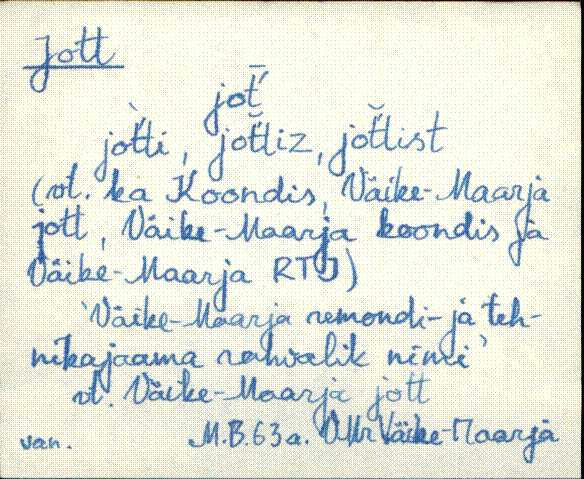 Jott
jot̄´
jot̆ti, jot̆tiz, jot̆tist
(vt. ka Koondis, Väike-Maarja
jott, Väike-Maarja koondis ja
Väike-Maarja RTJ)
'Väike-Maarja remondi- ja teh-
nikajaama rahvalik nimi'
vt. Väike-Maarja jott
van. M.B.63a. VMr Väike-Maarja